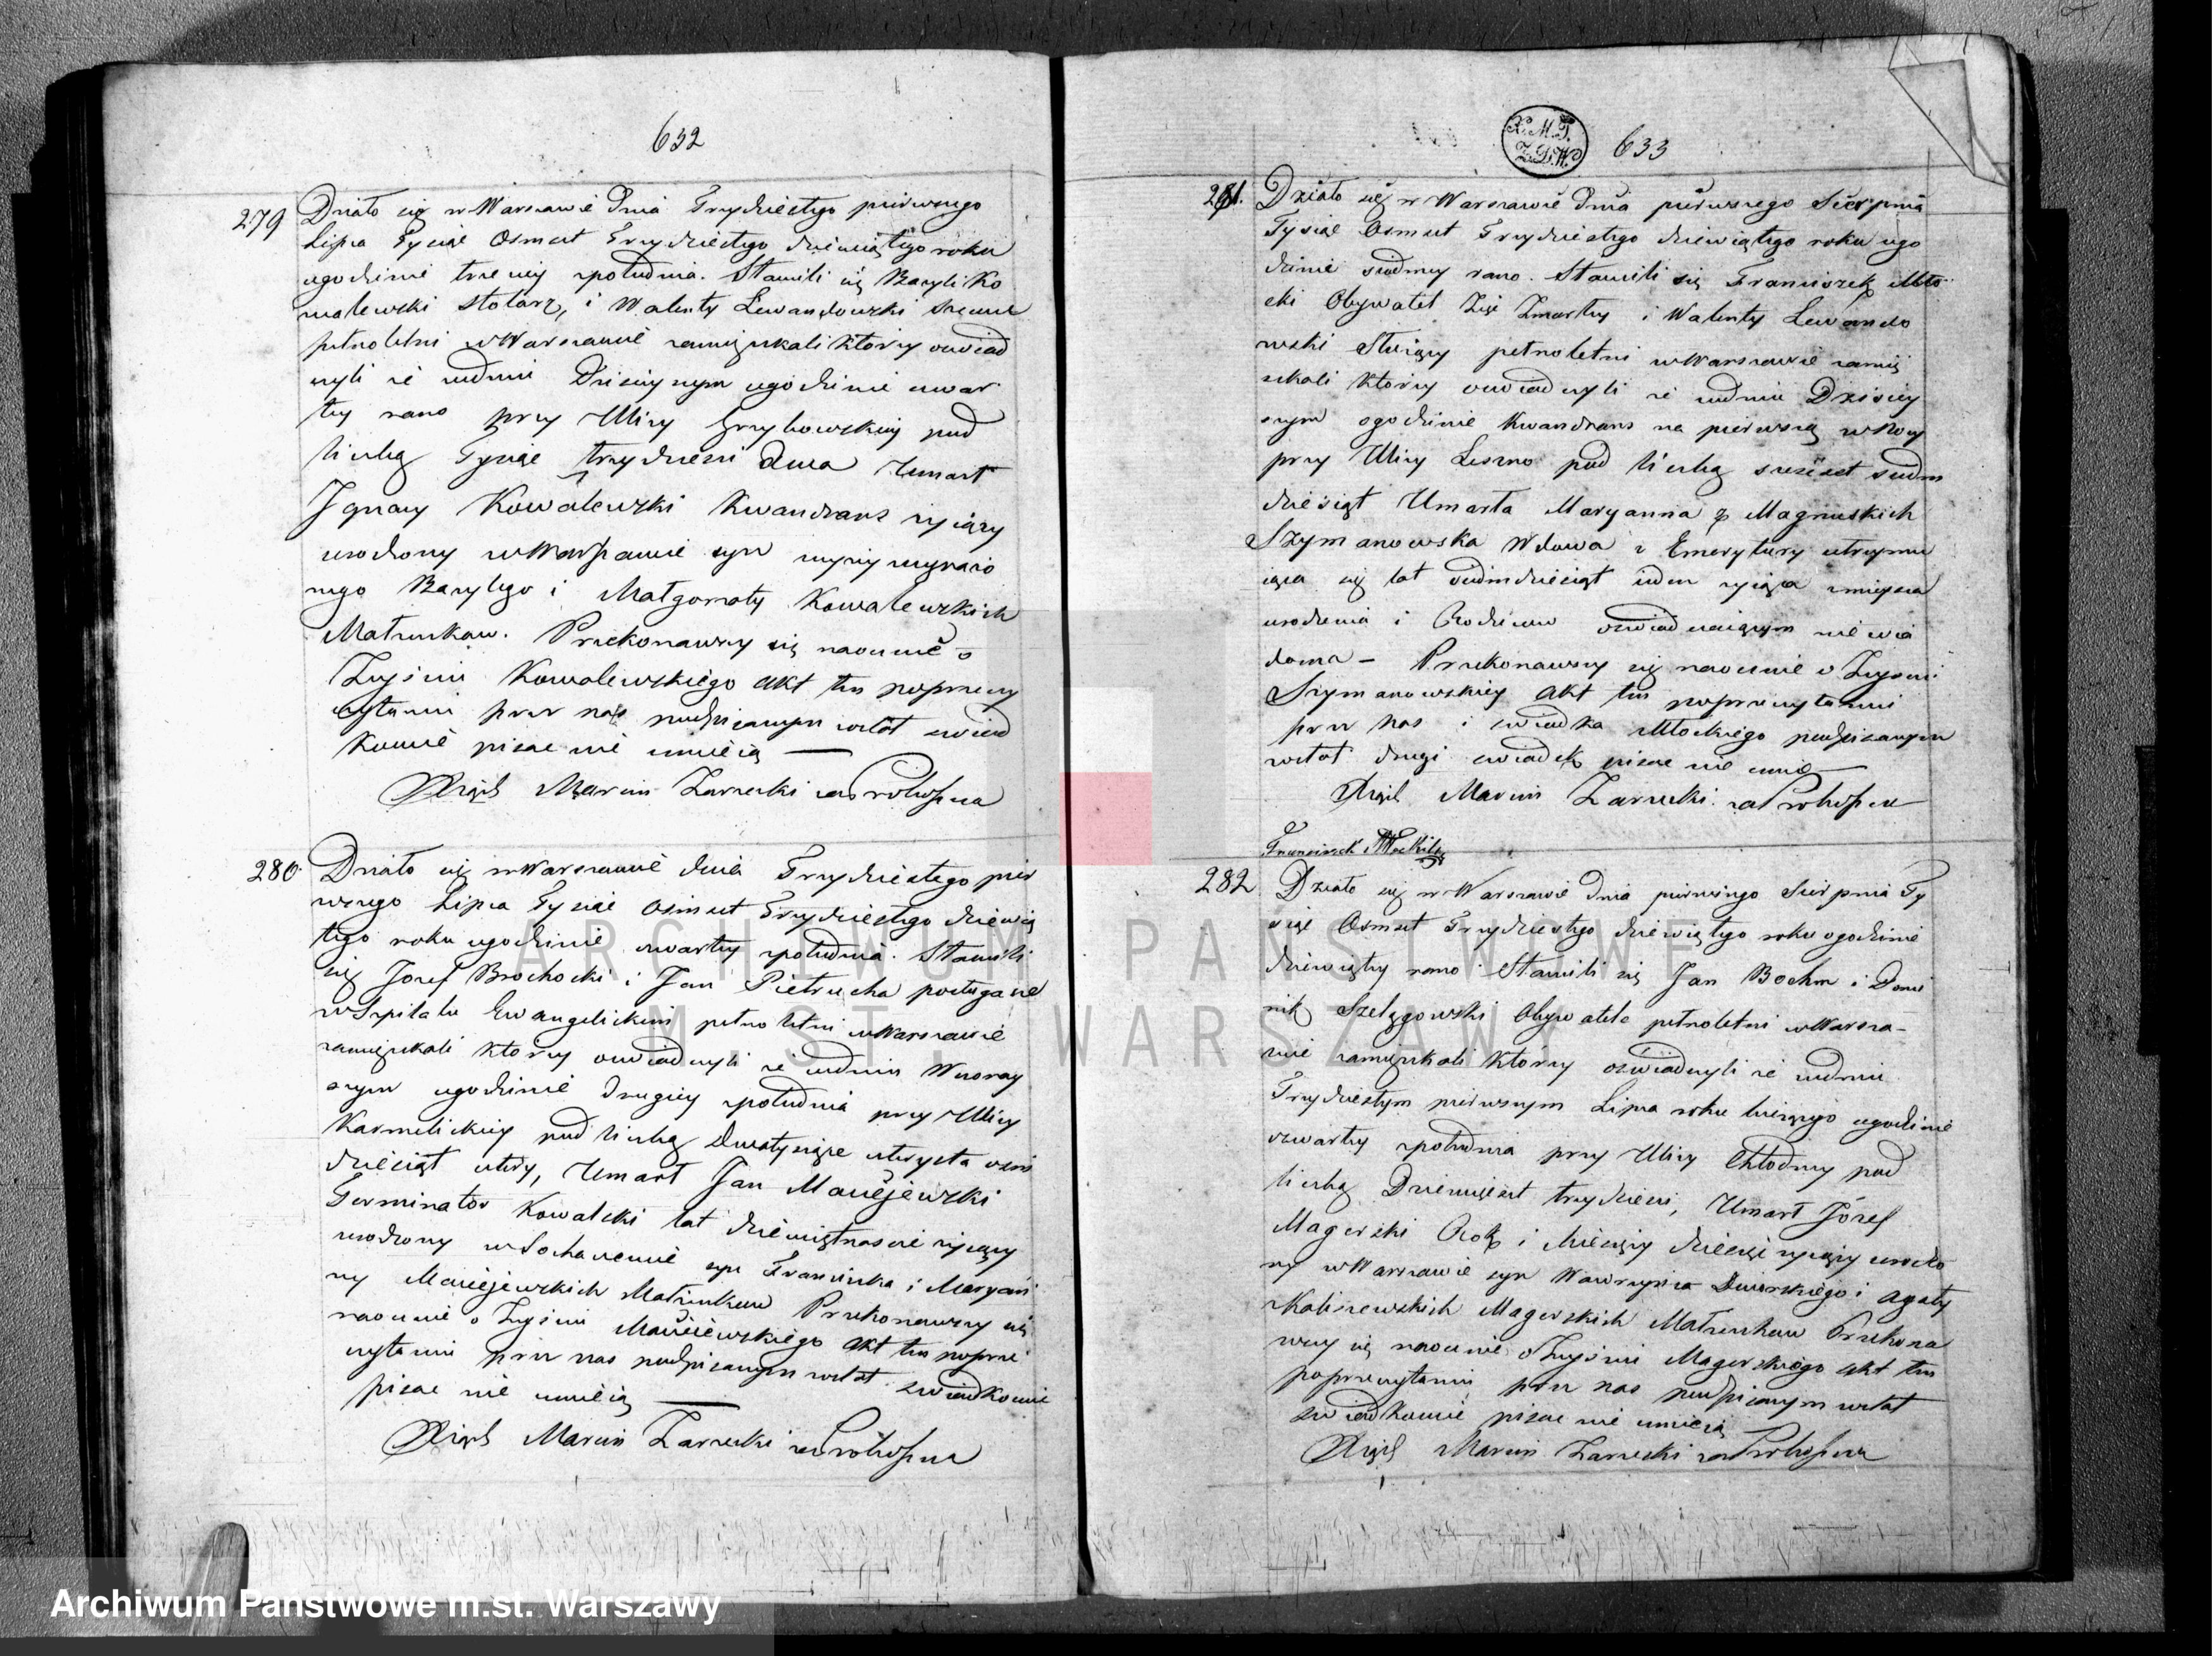 632
279
Działo się w Warszawie Dnia Trzydziestego pierwszego
Lipca Tysiąc Osmset Trzydziestego dziewiątego roku
ogodzinie trzeciey zpołudnia. Stawili się Bazyli Ko
walewski stolarz, i Walenty Lewandowski
pełnoletni w Warszawie zamięszkali którzy oswiad
czyli iż wdniu Dzisieyszym ogodzinie czwar
tey rano przy Ulicy Grzybowskiey pod
liczbą Tysiąc trzydzieści dwa Umarł
Ignacy Kowalewski Kwandrans żyjący
urodzony w Warszawie syn wyżey wyrażo
nego Bazylego i Małgorzaty Kowalewskich
Małżonków. Przekonawszy się naocznie o
Zejściu Kowalewskiego Akt ten poprzeczy
czytaniu przez nas podpisanym został swiad
kowie pisać nie umieią
Xiądz Marcin Zarzecki za Proboszcza
280
Działo się w Warszawie dnia Trzydziestego pier
wszego Lipca Tysiąc Osmset Trzydziestego dziewią
tego roku ogodzinie czwartey zpołudnia. Stawili
się Jozef Brochocki i Jan Pietrucha posługacze
w Szpitalu Ewangelickim pełnoletni w Warszawie
zamięszkali którzy oswiadczyli iż wdniu Wczoray
szym ogodzinie Drugiey zpołudnia przy Ulicy
Karmelickiey pod liczbą Dwatysiące czterysta osm
dziesiąt cztery, Umarł Jan Maciejewski
Terminator Kowalski lat dziewiętnascie żyjący
urodzony w Sochaczewie syn Franciszka i Maryan
ny Maciejewskich Małżonków Przekonawszy się
naocznie o Zejściu Maciejewskiego Akt ten poprze
czytaniu przez nas podpisanym został swiadkowie
pisać nie umieią
Xiądz Marcin Zarzecki za Proboszcza
633
281.
Działo się w Warszawie Dnia pierwszego Sierpnia
Tysiąc Osmset Trzydziestego dziewiątego roku ogo
dzinie siodmey rano. Stawili się Franciszek Mło
cki Obywatel Zięć Zmarłey i Walenty Lewando
wski Służący pełnoletni w Warszawie zamię
szkali którzy oswiadczyli iż wdniu Dzisiey
szym ogodzinie Kwandrans na pierwszą w Nocy
przy Ulicy Leszno pod liczbą szesset siedm
dziesiąt Umarła Maryanna z Magnuskich
Szymanowska Wdowa z Emerytury utrzymu
iąca się lat siedmdziesiąt ieden żyjąca zmieysca
urodzenia i Rodziców oswiadczaiącym nie wia
doma – Przekonawszy się naocznie o Zejściu
Szymanowskiey Akt ten poprzeczytaniu
przez nas i swiadka Młockiego podpisanym
został drugi swiadek pisać nie umie
Xiądz Marcin Zarzecki za Proboszcza
Franciszek Młocki
282
Działo się w Warszawie Dnia pierwszego Sierpnia Ty
siąc Osmset Trzydziestego dziewiątego roku ogodzinie
dziewiątey rano Stawili się Jan Boehm i Domi
nik Szelągowski Obywatele pełnoletni w Warsza-
wie zamięszkali którzy oświadczyli iż wdniu
Trzydziestym pierwszym Lipca roku bieżącego ogodzinie
czwartey zpołudnia przy Ulicy Chłodney pod
liczbą Dziewięćset trzydzieści, Umarł Józef
Magerski Rok i Miesięcy dziesięć żyjący urodzo
ny w Warszawie syn Wawrzyńca Dworskiego i Agaty
Kaliszewskich Magerskich Małżonków Przekona
wszy się naocznie o Zejściu Magerskiego Akt ten
poprzeczytaniu przez nas podpisanym został
swiadkowie pisać nie umieią
Xiądz Marcin Zarzecki za Proboszcza
ARCHIWUM PAŃSTWOWE
M. ST. WARSZAWY
Archiwum Państwowe m.st. Warszawy